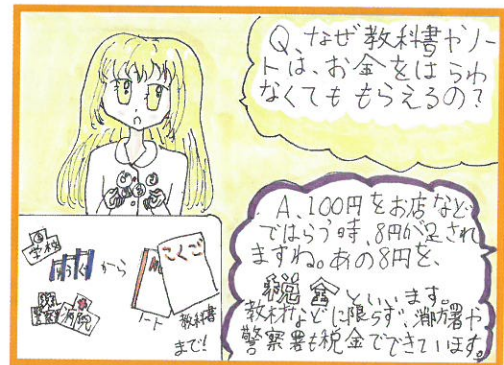 Q、なぜ教科書やノー
トは、お金をはらわ
なくてももらえるの？
A、100円をお店などで
はらう時、8円が足され
ますね。あの8円を、
税金といいます。
教材などに限らず、消防署や
警察署も税金でできています。
学校
から
こくご
ノート
教科書
まで!